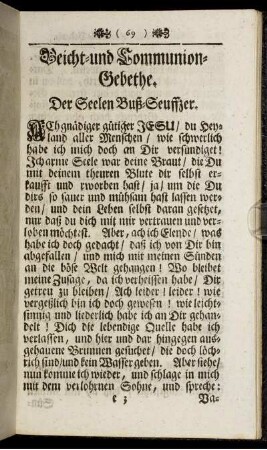 ( 69 )
Beicht- und Communion-
Gebethe.
Der Seelen Buß-Seuffzer.
ACh gnädiger gütiger JESU/ du Hey-
land aller Menschen/ wie schwerlich
habe ich mich doch an Dir versündiget!
Ich arme Seele war deine Braut/ die Du
mit deinem theuren Blute dir selbst er-
kaufft und erworben hast/ ja/ um die Du
dirs so sauer und mühsam hast lassen wer-
den/ und dein Leben selbst daran gesetzet,
nur daß du dich mit mir vertrauen und ver-
loben möchtest. Aber, ach ich Elende/ was
habe ich doch gedacht/ daß ich von Dir bin
abgefallen/ und mich mit meinen Sünden
an die böse Welt gehangen! Wo bleibet
meine Zusage, da ich verheissen habe/ Dir
getreu zu bleiben/ Ach leider! leider! wie
vergeßlich bin ich doch gewesen! wie leicht-
sinnig und liederlich habe ich an Dir gehan-
delt! Dich die lebendige Quelle habe ich
verlassen, und hier und dar hingegen aus-
gehauene Brunnen gesuchet/ die doch löch-
rich sind/ und kein Wasser geben. Aber siehe/
nun komme ich wieder, und schlage in mich
mit dem verlohrnen Sohne, und spreche:
e 3 Va-